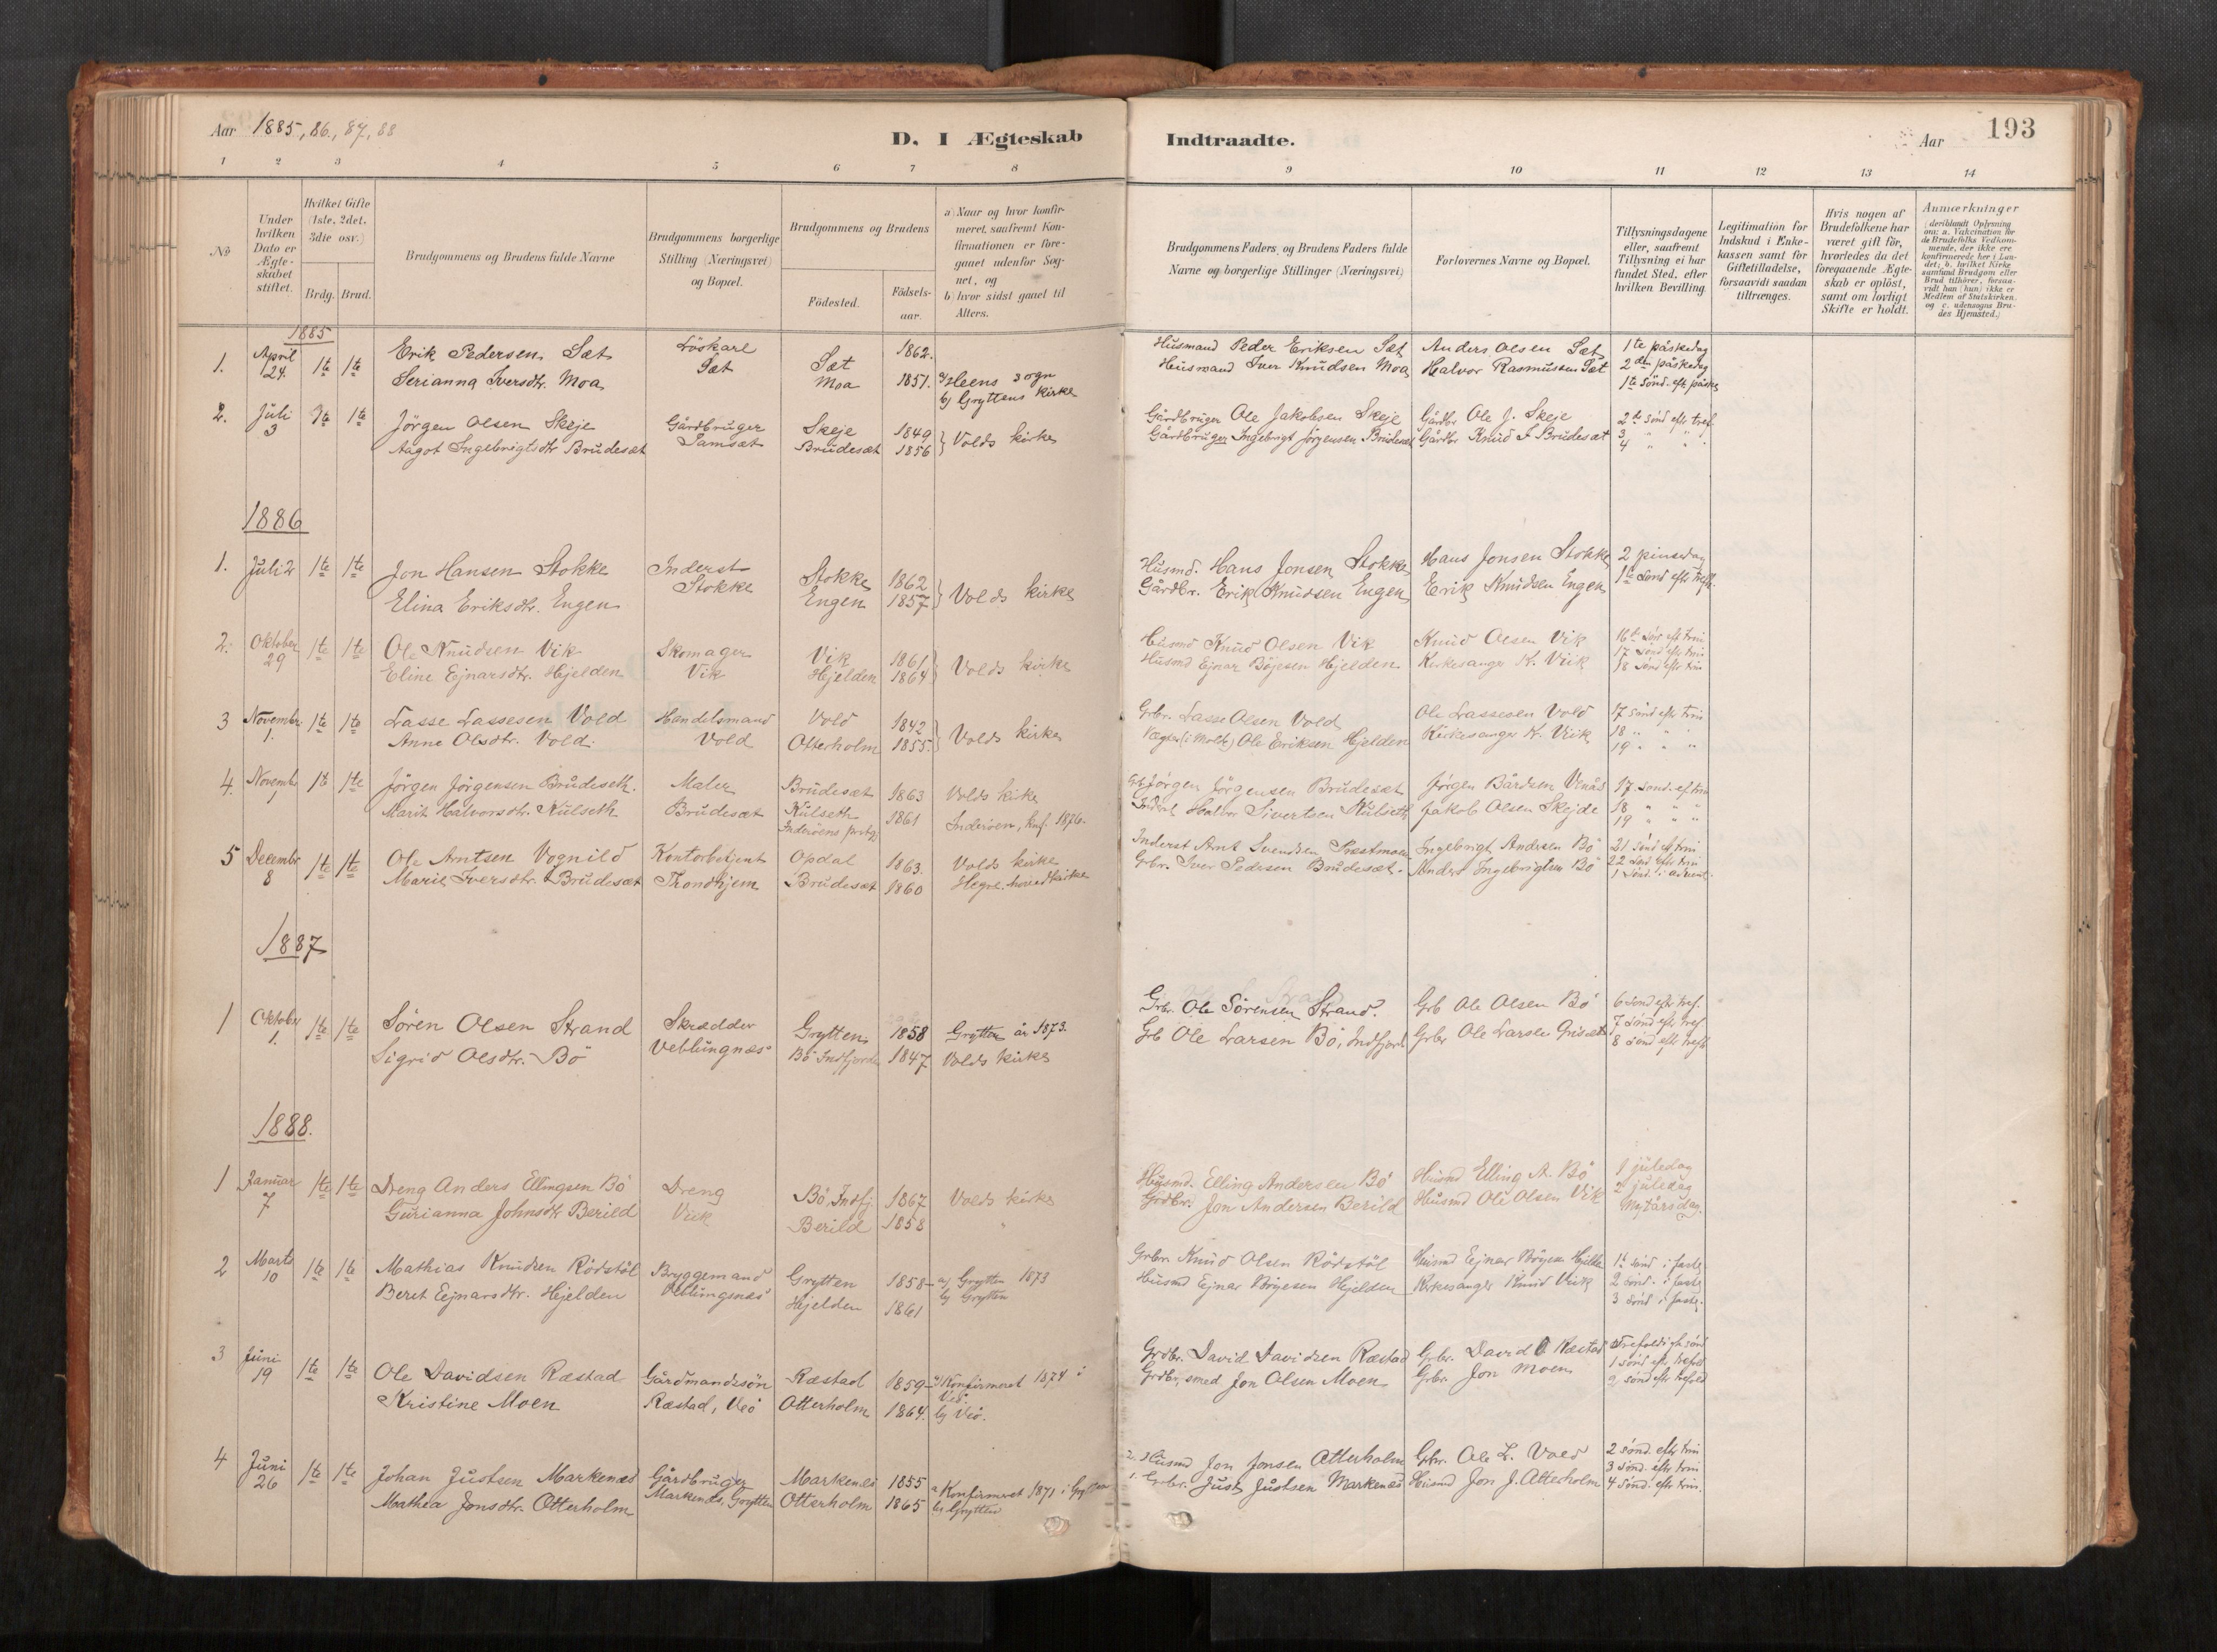 Aar 1885, 86, 87, 88
D. I Ægteskab
Indtraadte.
Aar
193
1 2 3 4 5 6 7 8 9 10 11 12 13 14
No
Under hvilken Dato er Ægteskabet stiftet.
Hvilket Gifte (1ste, 2det, 3die osv.)
Brdg. Brud.
Brudgommens og Brudens fulde Navne
Brudgommens borgerlige Stilling (Næringsvei) og Bopæl.
Brudgommens og Brudens
Födested.
Födsels-aar.
a) Naar og hvor konfirmeret, saafremt Konfirmationen er foregaaet udenfor Sognet, og
b) hvor sidst gaaet til Alters.
Brudgommens Faders og Brudens Faders fulde Navne og borgerlige Stillinger (Næringsvei)
Forlovernes Navne og Bopæl.
Tillysningsdagene eller, saafremt Tillysning ei har fundet Sted, efter hvilken Bevilling.
Legitimation for Indskud i Enkekassen samt for Giftetilladelse, forsaavidt saadan tiltrænges.
Hvis nogen af Brudefolkene har været gift för, hvorledes da det foregaaende Ægteskab er oplöst, samt om lovligt Skifte er holdt.
Anmærkninger (deriblandt Oplysning om: a. Vakcination for de Brudefolks Vedkommende, der ikke ere konfirmerede her i Landet; b. hvilket Kirkesamfund Brudgom eller Brud tilhörer, forsaavidt han (hun) ikke er Medlem af Statskirken, og c. udensogns Brudes Hjemsted.)
1885
1. April 24. 1te 1te Erik Pedersen Sæt Löskarl Sæt Sæt 1862. Husmand Peder Eriksen Sæt Anders Olsen Sæt 1te påskedag
Serianna Iversdtr. Moa Moa 1851. a) Heens sogn b) Gryttens kirke Husmand Iver Knudsen Moa Halvor Rasmussen Sæt 2den påskedag
1te sönd. eft. påske
2. Juli 3 1te 1te Jörgen Olsen Skeje Gårdbruger Samsæt Skeje 1849 Gårdbruger Ole Jakobsen Skeje Gårdbr. Ole J. Skeje 2de sönd efter tref.
Aagot Ingebrigtsdtr Brudesæt Brudesæt 1856 } Volds kirke Gårdbruger Ingebrigt Jörgensen Brudesæt Gårdbr Knud I Brudesæt 3 " "
4 " "
1886
1. Juli 2 1te 1te Jon Hansen Stokke Inderst Stokke Stokke 1862 Husmd. Hans Jonsen Stokke Hans Jonsen Stokke 2 pinsedag
Elina Eriksdtr. Engen Engen 1857 } Volds kirke Gårdbr. Erik Knudsen Engen Erik Knudsen Engen 1te sönd eftr trefl.
2. Oktober 29 1te 1te Ole Knudsen Vik Skomager Vik Vik 1861 Husmd Knud Olsen Vik Knud Olsen Vik 16te sönd eft trin
Eline Ejnarsdtr. Hjelden Hjelden 1864 } Volds kirke Husmd Ejnar Böjesen Hjelden Kirkesanger K. Viik 17 sönd efter trin
18 sönd efter trin
3 Novembr. 1. 1te 1te Lasse Lassesen Vold Handelsmand Vold Vold 1842 Grbr. Lasse Olsen Vold Ole Lassesen Vold 17 sönd efter trin
Anne Olsdtr. Vold. Otterholm 1855. } Volds kirke Vægter (i Molde) Ole Eriksen Hjelden Kirkesanger K. Viik 18 " "
19 " "
4. Novembr 1 1t 1te Jörgen Jörgensen Brudeseth. Maler Brudesæt Brudesæt 1863 Volds kirke Jörgen Jörgensen Brudesæt Jörgen Bårdsen Venås 17. sönd. eft trin
Marit Halvorsdtr. Kulseth Kulseth Inderöens prstgj 1861 Inderöen, konf. 1876. Inderst Halvor Sivertsen Kulseth Jakob Olsen Skejde 18 " "
19 " "
5 Decembr 8 1te 1te Ole Arntsen Vognild Kontorbetjent Trondhjem Opdal 1863. Volds kirke Inderst Arnt Svendsen Præstmoen Ingebrigt Andersen Bö 21 sönd eft trin
Marie Iversdtr. Brudesæt Brudesæt 1860 Hegre hovedkirke Grbr. Iver Pedersen Brudesæt. Anders Ingebrigtsen Bö 22 sönd efter trin
1 sönd. i advent
1887
1 Oktober 1. 1te 1te Sören Olsen Strand Skrædder Veblungnæs Grytten 1858 Grytten år 1873. Grbr. Ole Sörensen Strand. Grb Ole Olsen Bö 6 sönd efter tref.
Sigrid Olsdtr. Bö Bö Indfjorden 1847 Volds kirke Grb Ole Larsen Bö, Indfjord Grbr Ole Larsen Griset 7 sönd efter tref
8 sönd eftr trefl
1888.
1 Januar 7 1te 1te Dreng Anders Ellingsen Bö Dreng Viik Bö Indfj. 1867 Volds kirke Husmd. Elling Andersen Bö Husmd Elling A. Bö 1 juledag
Gurianna Johnsdtr Berild Berild 1858 " Grdbr. Jon Andersen Berild Husmd Ole Olsen Vik 2 juledag
Nytårsdag.
2 Marts 10 1te 1te Mathias Knudsen Rödstöl Bryggemand Veblungsnæs Grytten 1858 a) Grytten 1873 Grbr. Knud Olsen Rödstöl Husmd Ejnar Böyesen Hjelden 1te sönd i faste
Beret Ejnarsdtr. Hjelden Hjelden 1861 b) Grytten Husmd Ejnar Böyesen Hjelden Kirkesanger Knud Viik 2 sönd. i faste
3 sönd i faste.
3 Juni 19 1te 1te Ole Davidsen Ræstad Gårdmandssön Ræstad, Veö Ræstad 1859 a) Konfirmeret 1874 i Veö. Grdbr. David Davidsen Ræstad Grbr. David O Ræstad Trefoldigh sönd
Kristine Moen Otterholm 1864. b) Veö. Grdbr, smed Jon Olsen Moen Grbr. Jon Moen 1 sönd efter trefold
2 sönd efter trefold
4 Juni 26 1te 1te Johan Justsen Markenæs Gårdbruger Markenæs, Grytten Markenæs 1855 a Konfirmeret 1871 i Grytten 2. Husmd Jon Jonsen Otterholm Grbr. Ole L. Vold 2 sönd. efter trin
Mathea Jonsdtr. Otterholm Otterholm 1865 b) Grytten 1. Grbr. Just Justsen Markenæs Husmd Jon J. Otterholm 3 sönd. efter trin
4 sönd. efter trin.